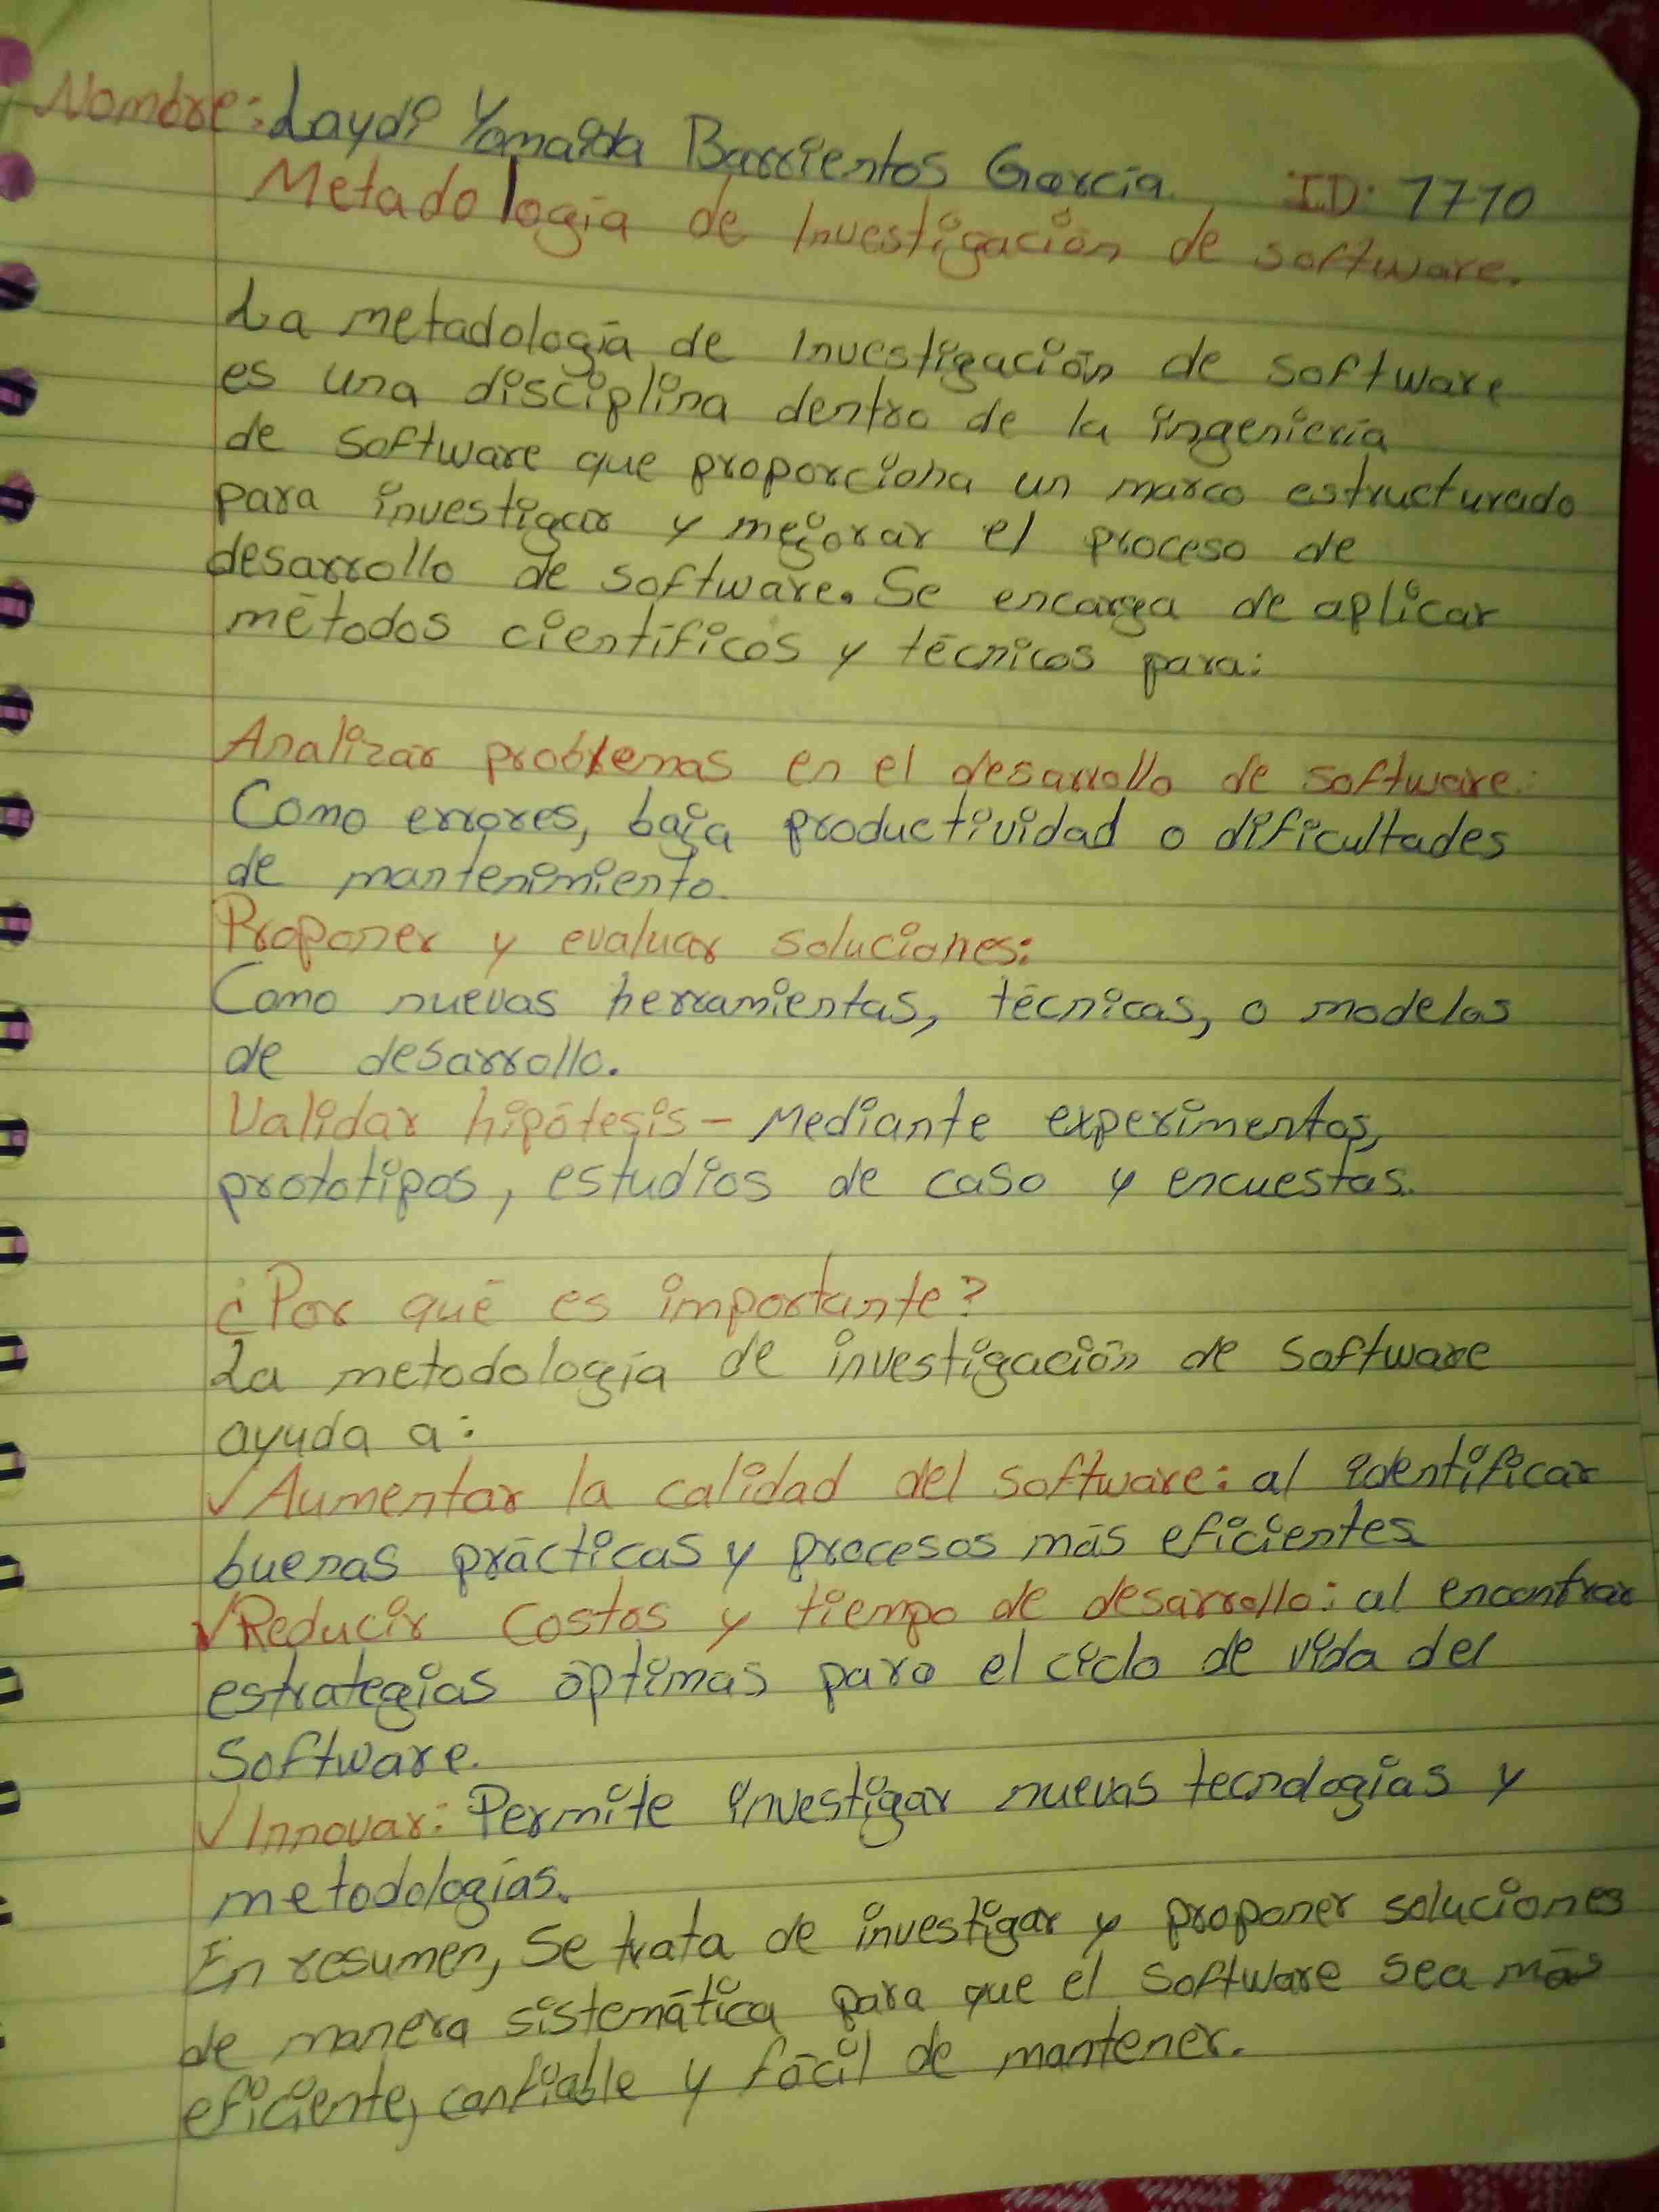 Nombre: Laydi Yomaida Barrientos García ID: 7770
Metadología de Investigación de software.
La metadología de Investigación de software
es una disciplina dentro de la ingeniería
de software que proporciona un marco estructurado
para investigar y mejorar el proceso de
desarrollo de software. Se encarga de aplicar
métodos científicos y técnicos para:
Analizar problemas en el desarrollo de software:
Como errores, baja productividad o dificultades
de mantenimiento.
Proponer y evaluar soluciones:
Como nuevas herramientas, técnicas, o modelos
de desarrollo.
Validar hipótesis - Mediante experimentos,
prototipos, estudios de caso y encuestas.
¿Por qué es importante?
La metodología de investigación de software
ayuda a:
✓Aumentar la calidad del software: al identificar
buenas prácticas y procesos más eficientes
✓Reducir costos y tiempo de desarrollo: al encontrar
estrategias óptimas para el ciclo de vida del
Software.
✓Innovar: Permite investigar nuevas tecnologías y
metodologías.
En resumen, Se trata de investigar y proponer soluciones
de manera sistemática para que el software sea más
eficiente, confiable y fácil de mantener.